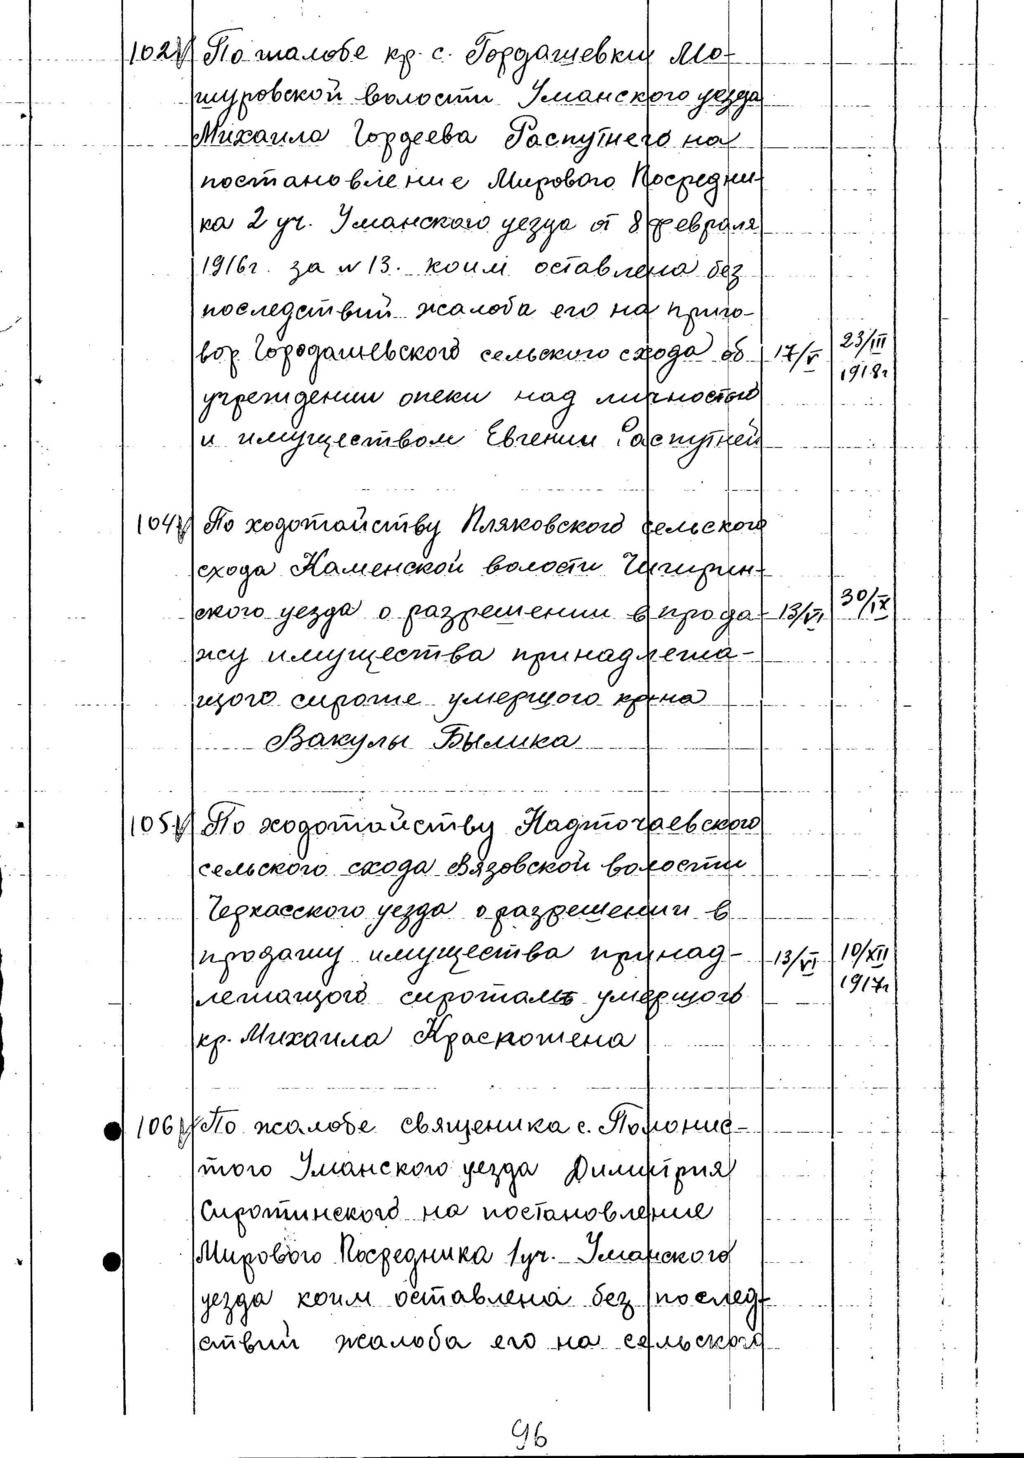 102 По жалобе кр. с. Гордашевки Мо-
шуровской волости Уманского уезда
Михаила Гордеева Распутнего на
постановление Мирового Посредни-
ка 2 уч. Уманского уезда от 8 февраля
1916г. за №13. коим оставлена без
последствий жалоба его на приго-
вор Городашевского сельского схода об 17/V 23/III 1918г
учреждении опеки над личностью
и имуществом Евгении Распутней
104 По ходотайству Пляковского сельского
схода Каменской волости Чигирин-
ского уезда о разрешении в прода- 13/VI 30/IX
жу имущества принадлежа-
щого сироте умершого кр-на
Вакулы Былика
105 По ходотайству Надточаевского
сельского схода Вязовской волости
Черкасского уезда о разрешении в
продажу имущества принад- 13/VI 10/XII 1917г
лежащого сиротам умершого
кр. Михаила Краскожена
106 По жалобе священика с. Полонис-
того Уманского уезда Димитрия
Сиротинского на постановление
Мирового Посредника 1 уч. Уманского
уезда коим оставлена без послед-
ствий жалоба его на сельского
96